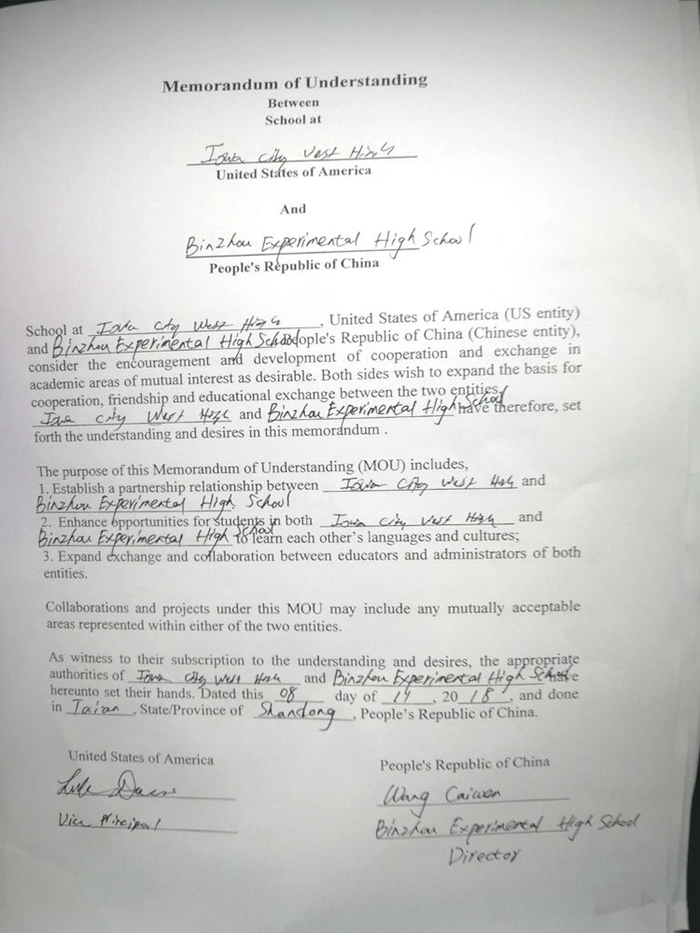 Memorandum of Understanding
Between
School at
Iowa City West High
United States of America
And
Binzhou Experimental High School
People's Republic of China
School at Iowa City West High, United States of America (US entity)
and Binzhou Experimental High School People's Republic of China (Chinese entity),
consider the encouragement and development of cooperation and exchange in
academic areas of mutual interest as desirable. Both sides wish to expand the basis for
cooperation, friendship and educational exchange between the two entities.
Iowa City West High and Binzhou Experimental High School have therefore, set
forth the understanding and desires in this memorandum .
The purpose of this Memorandum of Understanding (MOU) includes,
1. Establish a partnership relationship between Iowa City West High and
Binzhou Experimental High School
2. Enhance opportunities for students in both Iowa City West High and
Binzhou Experimental High School to learn each other's languages and cultures;
3. Expand exchange and collaboration between educators and administrators of both
entities.
Collaborations and projects under this MOU may include any mutually acceptable
areas represented within either of the two entities.
As witness to their subscription to the understanding and desires, the appropriate
authorities of Iowa City West High and Binzhou Experimental High School have
hereunto set their hands. Dated this 08 day of 14, 2018, and done
in Taian, State/Province of Shandong, People's Republic of China.
United States of America
People's Republic of China
Wang Caiwen
Vice Principal
Binzhou Experimental High School
Director